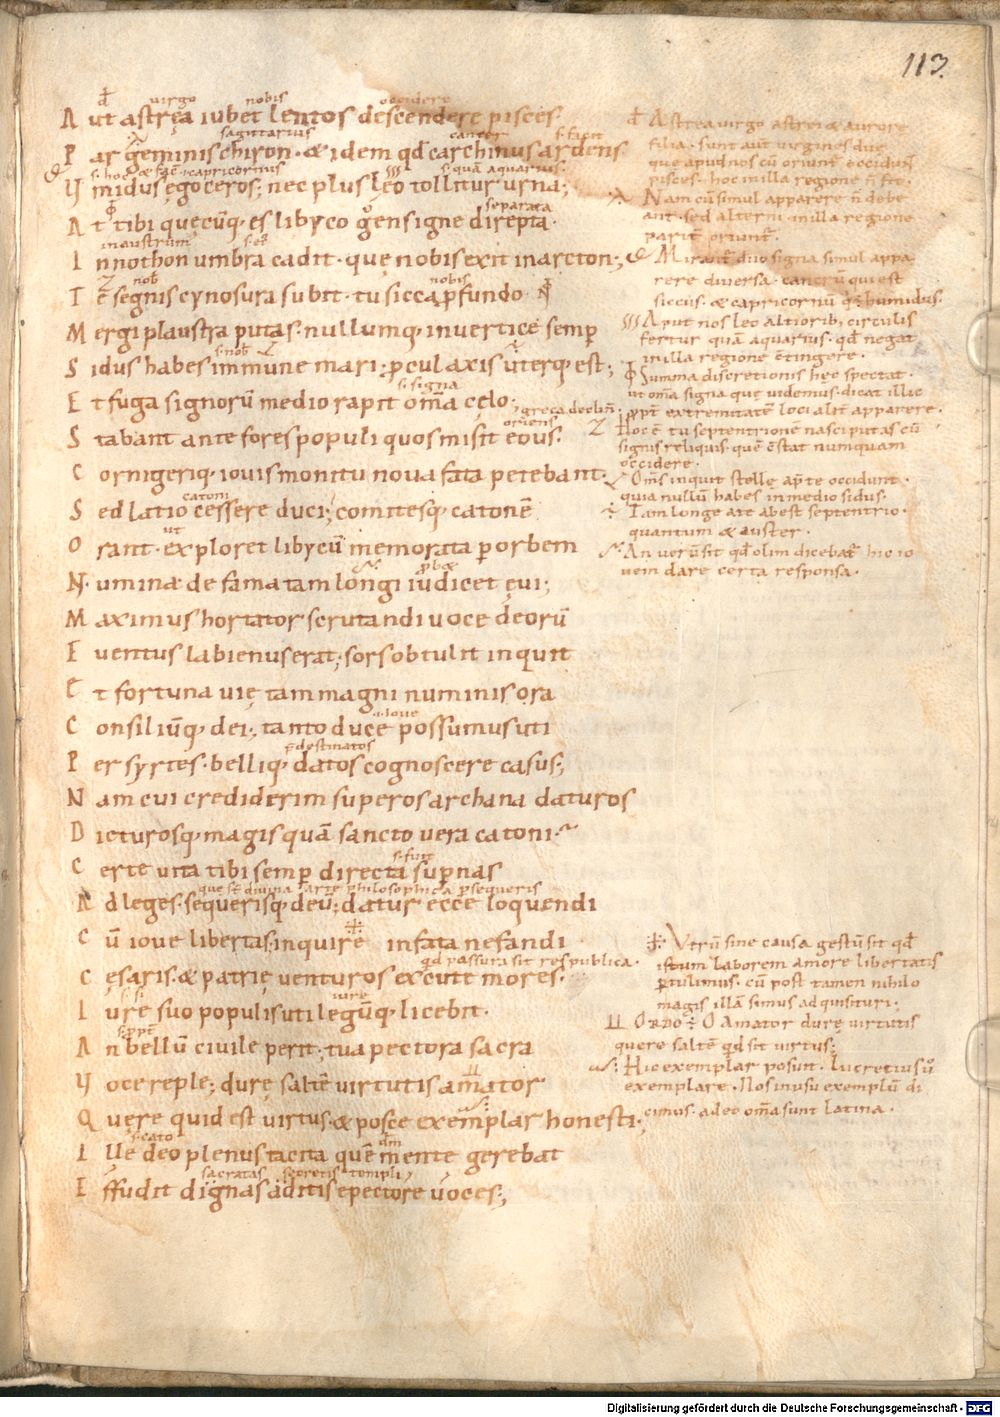 113.
virgo nobis occidere
Aut astrea iubet lentos descendere pisces.
sagittarius cancer s. facit
Par geminis chiron. & idem qđ carchinus ardens
s. hoc & facit capricornius s. quā aquarius.
Vmidus ęgoceros; nec plus leo tollitur urna;
separata
At tibi quęcūq; es libyco gens igne dirępta.
in austrum
Innothon umbra cadit. quę nobis exit in arcton;
nobis nobis
Te segnis cynosura subit. tu sicca ꝓfundo
Mergi plaustra putas. nullumq; in vertice semꝑ
s. nob̄
Sidus habes immune mari; ꝓcul axis uterq; est;
s. signa
Et fuga signorū medio rapit om̄a cęlo;
greca declin̄. oriens
Stabant ante fores populi quos misit eous.
Cornigeriq; iouis monitu noua fata petebant.
catoni
Sed latio cessere duci; comitesq; catonē
ut
Orant. exploret libycū memorata ꝑ orbem
ꝓbæ
Numina de fama tam longi iudicet ęui;
Maximus hortator scrutandi uoce deorū
Euentus labienus erat; sors obtulit inquit
Et fortuna uię tam magni numinis ora
a ioue
Consiliūq; dei; tanto duce possumus uti
p̄destinatos
Per syrtes. belliq; datos cognoscere casus;
Nam cui crediderim superos archana daturos
Dicturosq; magis quā sancto uera catoni.
s. fuit
Certe uita tibi semꝑ directa suꝑnas
que est diuina arte philosophica ꝑsequeris
Ad leges. sequerisq; deū; datur ecce loquendi
Cū ioue libertas; inquire in fata nefandi
qđ passura sit respublica.
Cęsaris. & patrię uenturos excute mores.
iure
Iure suo populis uti legūq; licebit.
An bellū ciuile perit; tua pectora sacra
Voce reple; durę saltē uirtutis amator
Quere quid est uirtus. & posce exemplar honesti;
s. cato
Ille deo plenus tacita quē mente gerebat
sacratas secretis templi
Effudit dignas aditis e pectore uoces;
Astrea virgo astrei & aurore
filia. sunt aut̄ virgines due
que apud nos cū oriunt̄ occidunt
pisces. hoc in illa regione n̄ fit.
Nam cū simul apparere n̄ debe
ant. sed alterni in illa regione
parit̄ oriunt̄.
Mirant̄ duo signa simul appa
rere diuersa. cancrū qui est
siccus. & capricornū q̄ ē humidus.
Aput nos leo altiorib; circulis
fertur quā aquarius. qđ negat
in illa regione c̄tingere.
Summa discretionis hęc spectat.
ut om̄a signa que uidemus. dicat illic
ꝓpt̄ extremitatē loci alit̄ apparere.
Hoc ē tu septentrionē nasci putas cū
signis reliquis. quē c̄stat numquam
occidere.
Om̄s inquit stelle ap̄te occidunt.
quia nullū habes in medio sidus.
Tam longe a te abest septentrio.
quantum & auster.
An uerū sit qđ olim dicebat̄ hic io
uem dare certa responsa.
Vtrū sine causa gestū sit qđ
istum laborem amore libertatis
ꝑtulimus. cū post tamen nihilo
magis illā simus adquisituri.
Ordo ÷ O amator dure uirtutis
quere saltē qđ sit uirtus;
Hic exemplar posuit. Lucretius u̇o
exemplare. Nos in usu exemplū di
cimus. adeo om̄a sunt latina.
Digitalisierung gefördert durch die Deutsche Forschungsgemeinschaft - DFG